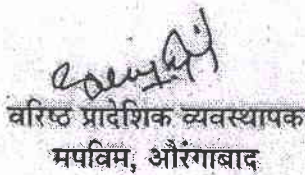 वरिष्ठ प्रादेशिक व्यवस्थापक
मपविम, औरंगाबाद